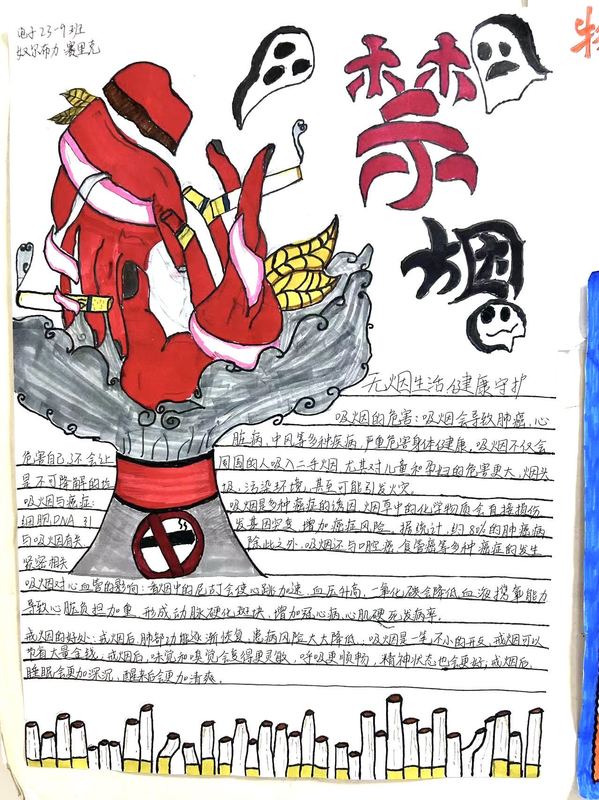 电子23-9班
奴尔布力 赛里克
禁
烟
无烟生活 健康守护
吸烟的危害:吸烟会导致肺癌,心
脏病,中风等多种疾病,严重危害身体健康。吸烟不仅会
危害自己,还会让周围的人吸入二手烟,尤其对儿童和孕妇的危害更大,烟头
是不可降解的垃圾,污染环境,甚至可能引发火灾。
吸烟与癌症:吸烟是多种癌症的诱因,烟草中的化学物质会直接损伤
细胞DNA,引发基因突变,增加癌症风险。据统计,约80%的肺癌病
与吸烟有关,除此之外,吸烟还与口腔癌,食管癌等多种癌症的发生
紧密相关
吸烟对心血管的影响:香烟中的尼古丁会使心跳加速,血压升高,一氧化碳会降低血液携氧能力
导致心脏负担加重,形成动脉硬化斑块,增加冠心病,心肌梗死发病率。
戒烟的好处:戒烟后,肺部功能逐渐恢复,患病风险大大降低,吸烟是一笔不小的开支,戒烟可以
节省大量金钱,戒烟后,味觉和嗅觉会变得更灵敏,呼吸更顺畅,精神状态也会更好,戒烟后,
睡眠会更加深沉,醒来后会更加清爽。